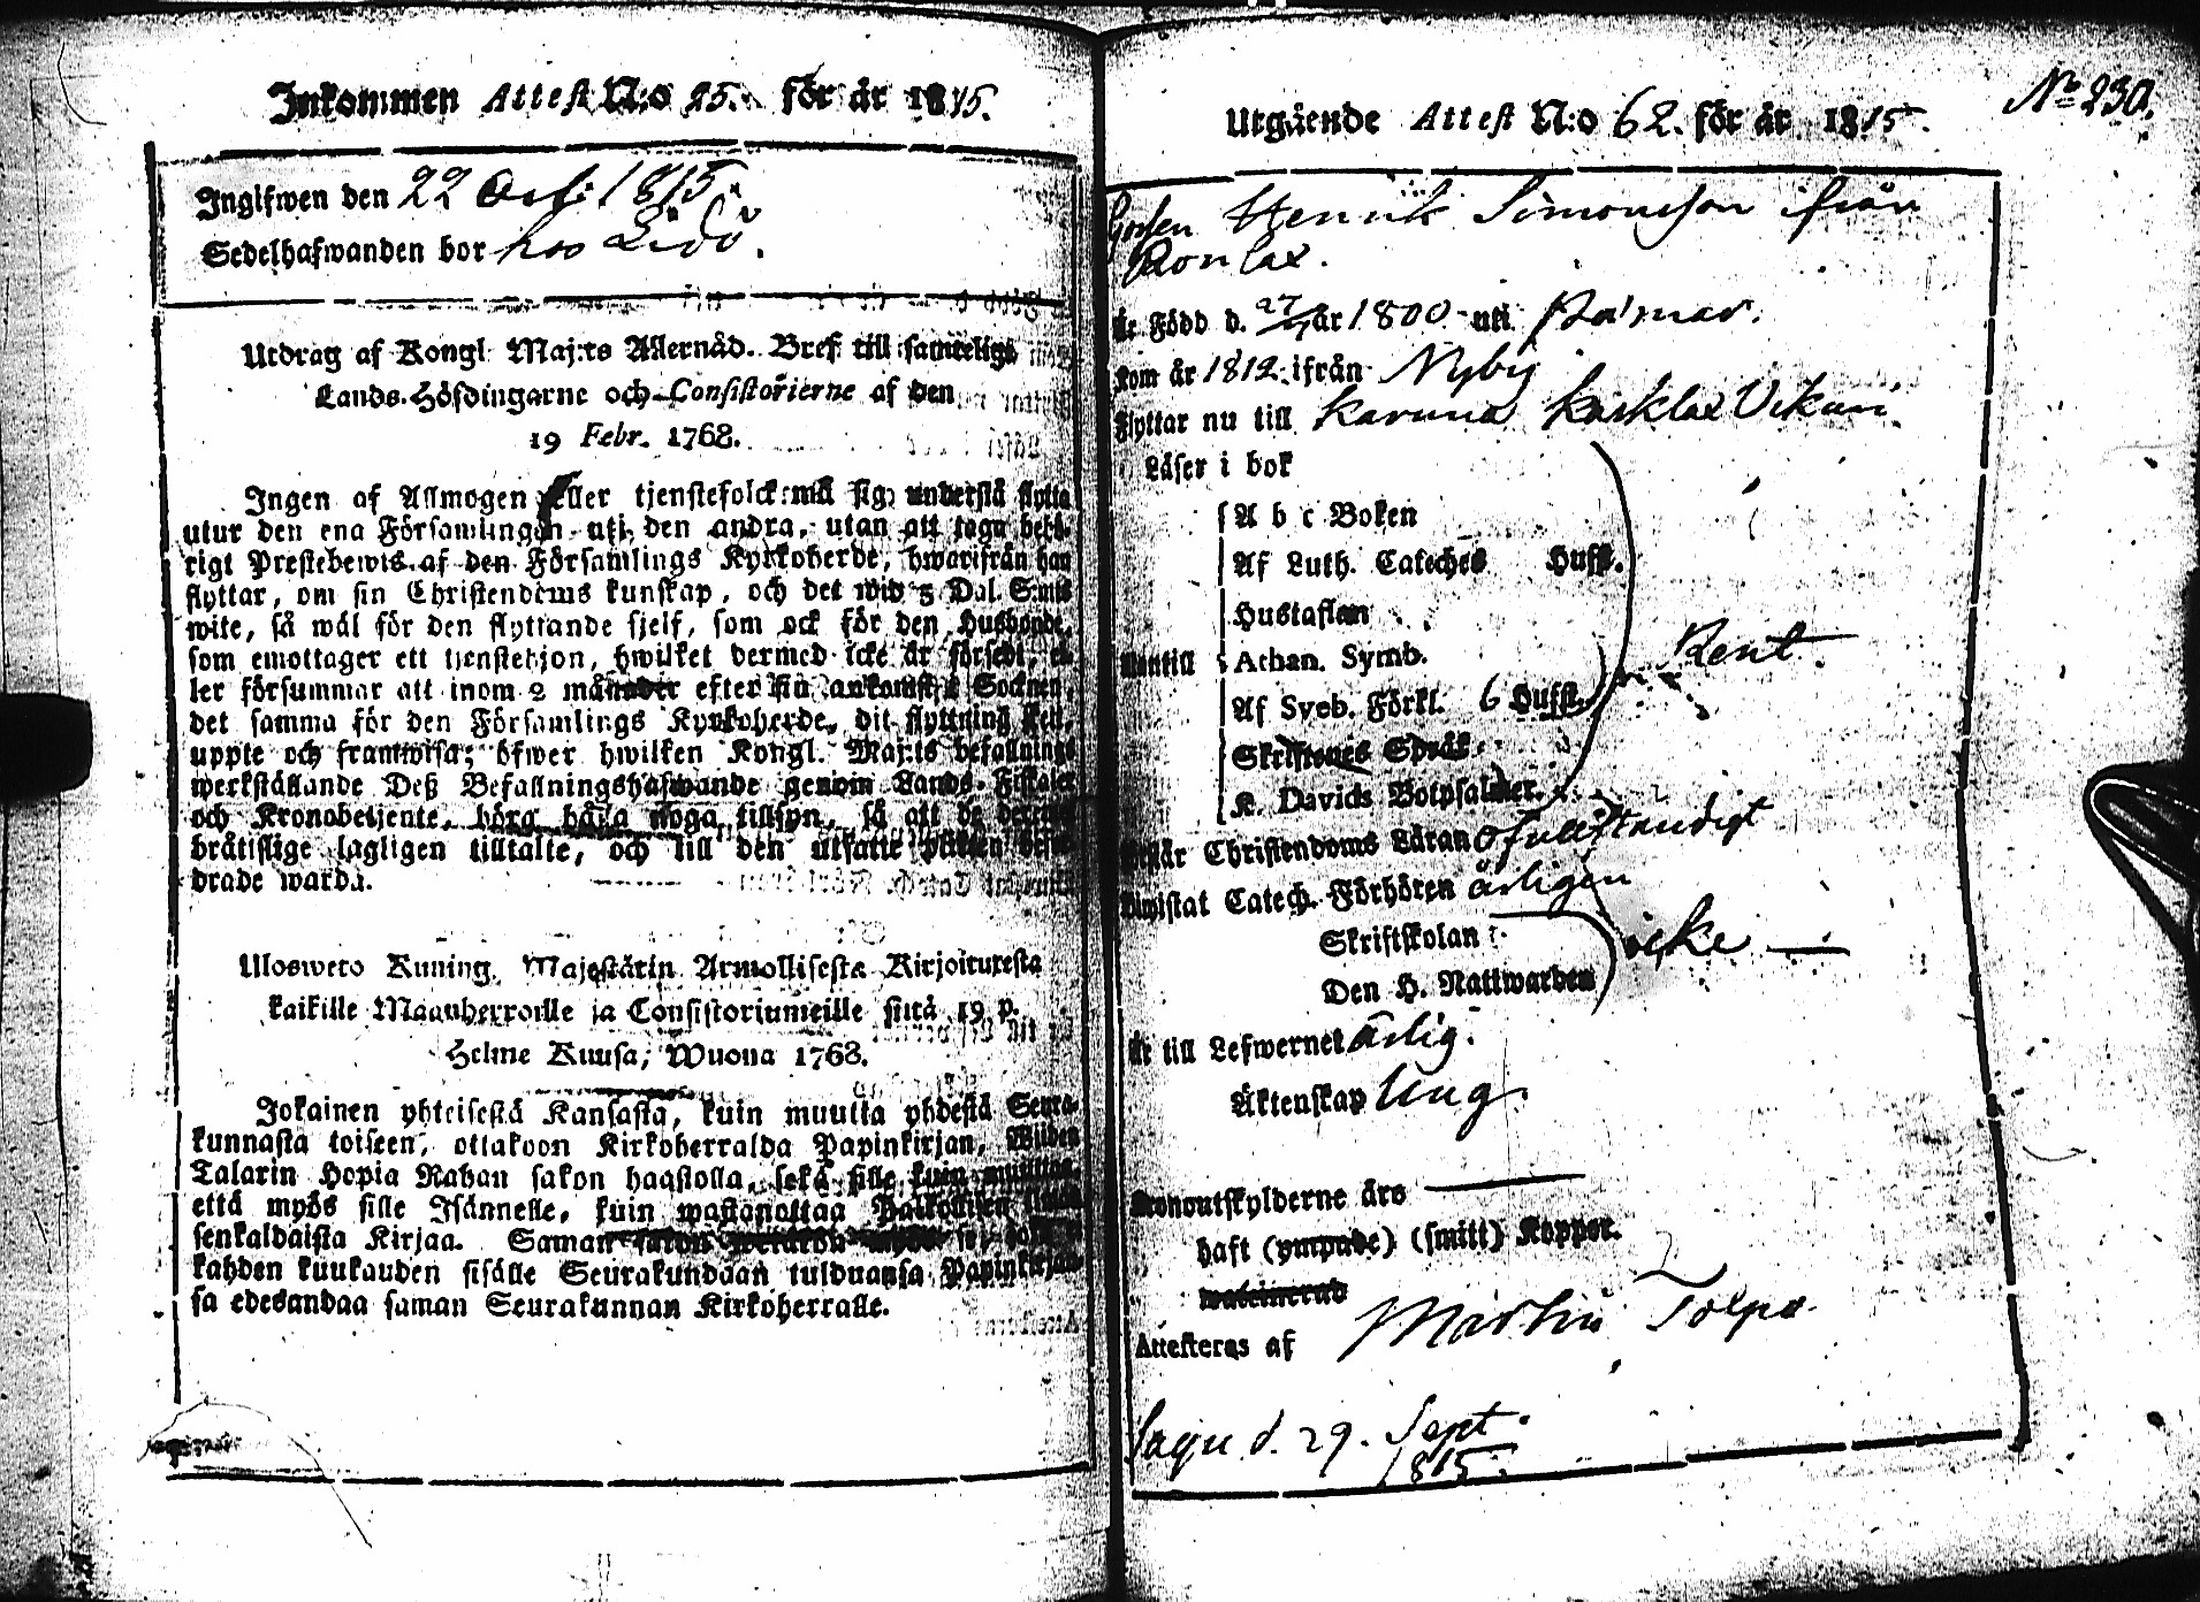 Inkommen Attest N:o 25. för år 1815.
Ingifwen den 22 Oct: 1815.
Sedelhafwanden bor hos Lidö.
Utdrag af Kongl Maj:ts Allernåd. Bref till samtelige
Lands-Höfdingarne och Consistorierne af den
19 Febr. 1768.
Ingen af Allmogen eller tjenstefolck må sig understå flytta
utur den ena Församlingen uti den andra, utan att taga behö-
rigt Prestebewis af den Församlings Kyrkoherde, hwarifrån han
flyttar, om sin Christendoms kunskap, och det wid 5 Dal. S:mts
wite, så wäl för den flyttande sjelf, som ock för den Husbonde,
som emottager ett tjenstehjon, hwilket dermed icke är försedt, el-
ler försummar att inom 2 månader efter sin ankomst i Socknen,
det samma för den Församlings Kyrkoherde, dit flyttning skett,
uppte och framwisa; öfwer hwilken Kongl. Maj:ts befallnings
werkställande Deß Befallningshafwande genom Lands-Fiskaler
och Kronobetjente, böra hålla noga tillsyn, så att de
brätslige lagligen tilltalte, och till den utsatte plikten
drade warda.
Uloswero Kuning. Majestätin Armollisesta Kirjoituresta
kaikille Maanherroille ja Consistoriumeille siitä 19 p.
Helme Kuusa, Wuona 1768.
Jokainen yhteisestä Kansasta, kuin muutta yhdestä Seura-
kunnasta toiseen, ottakoon Kirkoherralda Papinkirjan, Wiiden
Talarin Hopia Rahan sakon haastolla, sekä sille kuin muuttaa,
että myös sille Isännelle, kuin wastanottaa Palkollisen ilman
senkaldaista Kirjaa. Saman
kahden kuukauden sisälle Seurakundaan tulduansa Papinkirjan-
sa edesandaa saman Seurakunnan Kirkoherralle.
No 230.
Utgående Attest N:o 62. för år 1815.
Gossen Henrik Simonsson ifrån
Ronlax.
Är Född d. 27/ år 1800 uti Pämar.
Kom år 1812 ifrån Nyby
Flyttar nu till Karuna Karklax Vikari
Läser i bok
A b c Boken
Af Luth. Cateches Hufs.
Hustaflan
Uantill Athan. Symb. Rent.
Af Sveb. Förkl. 6 Hufst.
Skriftenes Språk
K. Davids Botpsalmer.
Förstår Christendoms Läran ofullständigt
Biwistat Catech. Förhören årligen
Skriftskolan icke
Den H. Nattwarden
Är till Lefwernet ärlig.
Äktenskap Ung.
Kronoutskylderne äro
haft (ympade) (smitt) Koppor.
waccinerad
Attesteras af Martin Tolpo
Sagu d. 29. Sept.
1815.